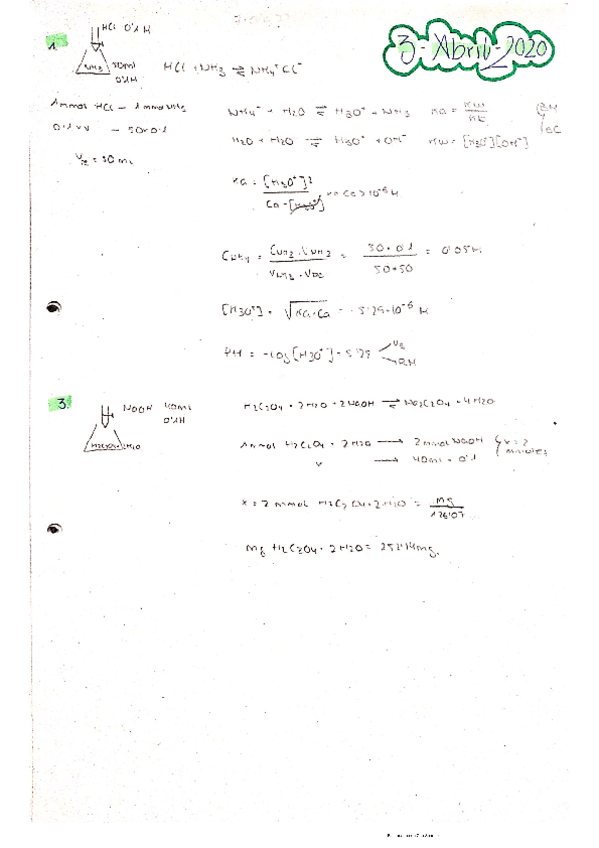 3-Abril-2020
1.
HCl 0'1 M
NH3 50ml
0'1M
HCl + NH3 ⇌ NH4+ Cl-
1mmol HCl - 1mmol NH3
0'1·V - 50·0'1
NH4+ + H2O ⇌ H3O+ + NH3 Ka = Kw/Kb
H2O + H2O ⇌ H3O+ + OH- Kw = [H3O+][OH-]
Ka = [H3O+]²/Ca-[H3O+]
= 50·0'1/50+50 = 0'05M
[H3O+] = √Ka·Ca = 5'29·10-6 M
PH = -log[H3O+] = 5'28
3.
NaOH 40ml
0'1M
H2C2O4·2H2O + 2NaOH ⇌ Na2C2O4 + 4H2O
1mmol H2C2O4·2H2O → 2mmol NaOH
x → 40ml · 0'1
x = 2 mmol H2C2O4·2H2O = mg/126'07
mg H2C2O4·2H2O = 252'14mg.